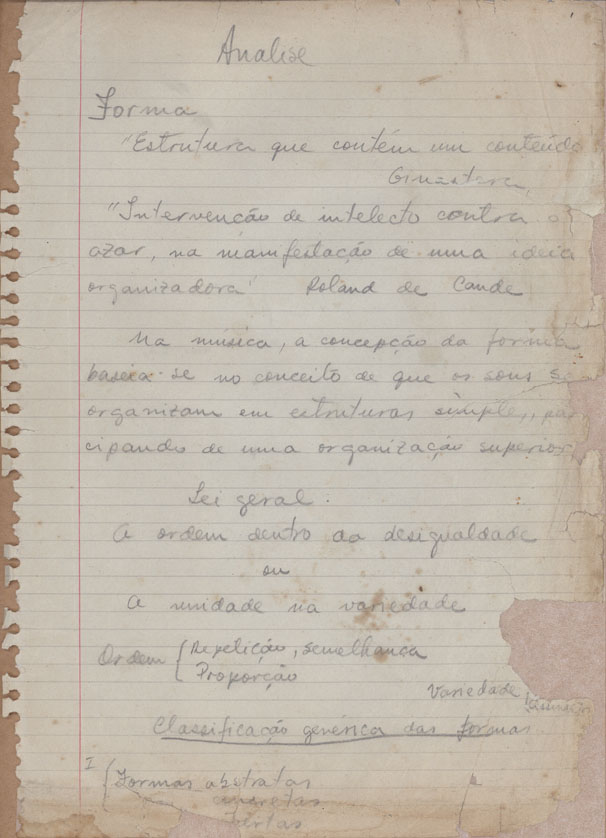 Analise
Forma
"Estrutura que contém um conteúdo
Ginastera,
"Intervenção de intelecto contra o
azar, na manifestação de uma ideia
organizadora" Roland de Cande
Na música, a concepção da forma
baseia-se no conceito de que os sons se
organizam em estruturas simples, par
cipando de uma organização superior
Lei geral:
A ordem dentro da desigualdade
ou
A unidade na variedade
Ordem { Repetição, semelhança
Proporção
Variedade
Classificação genérica das formas
I { Formas abstratas
concretas